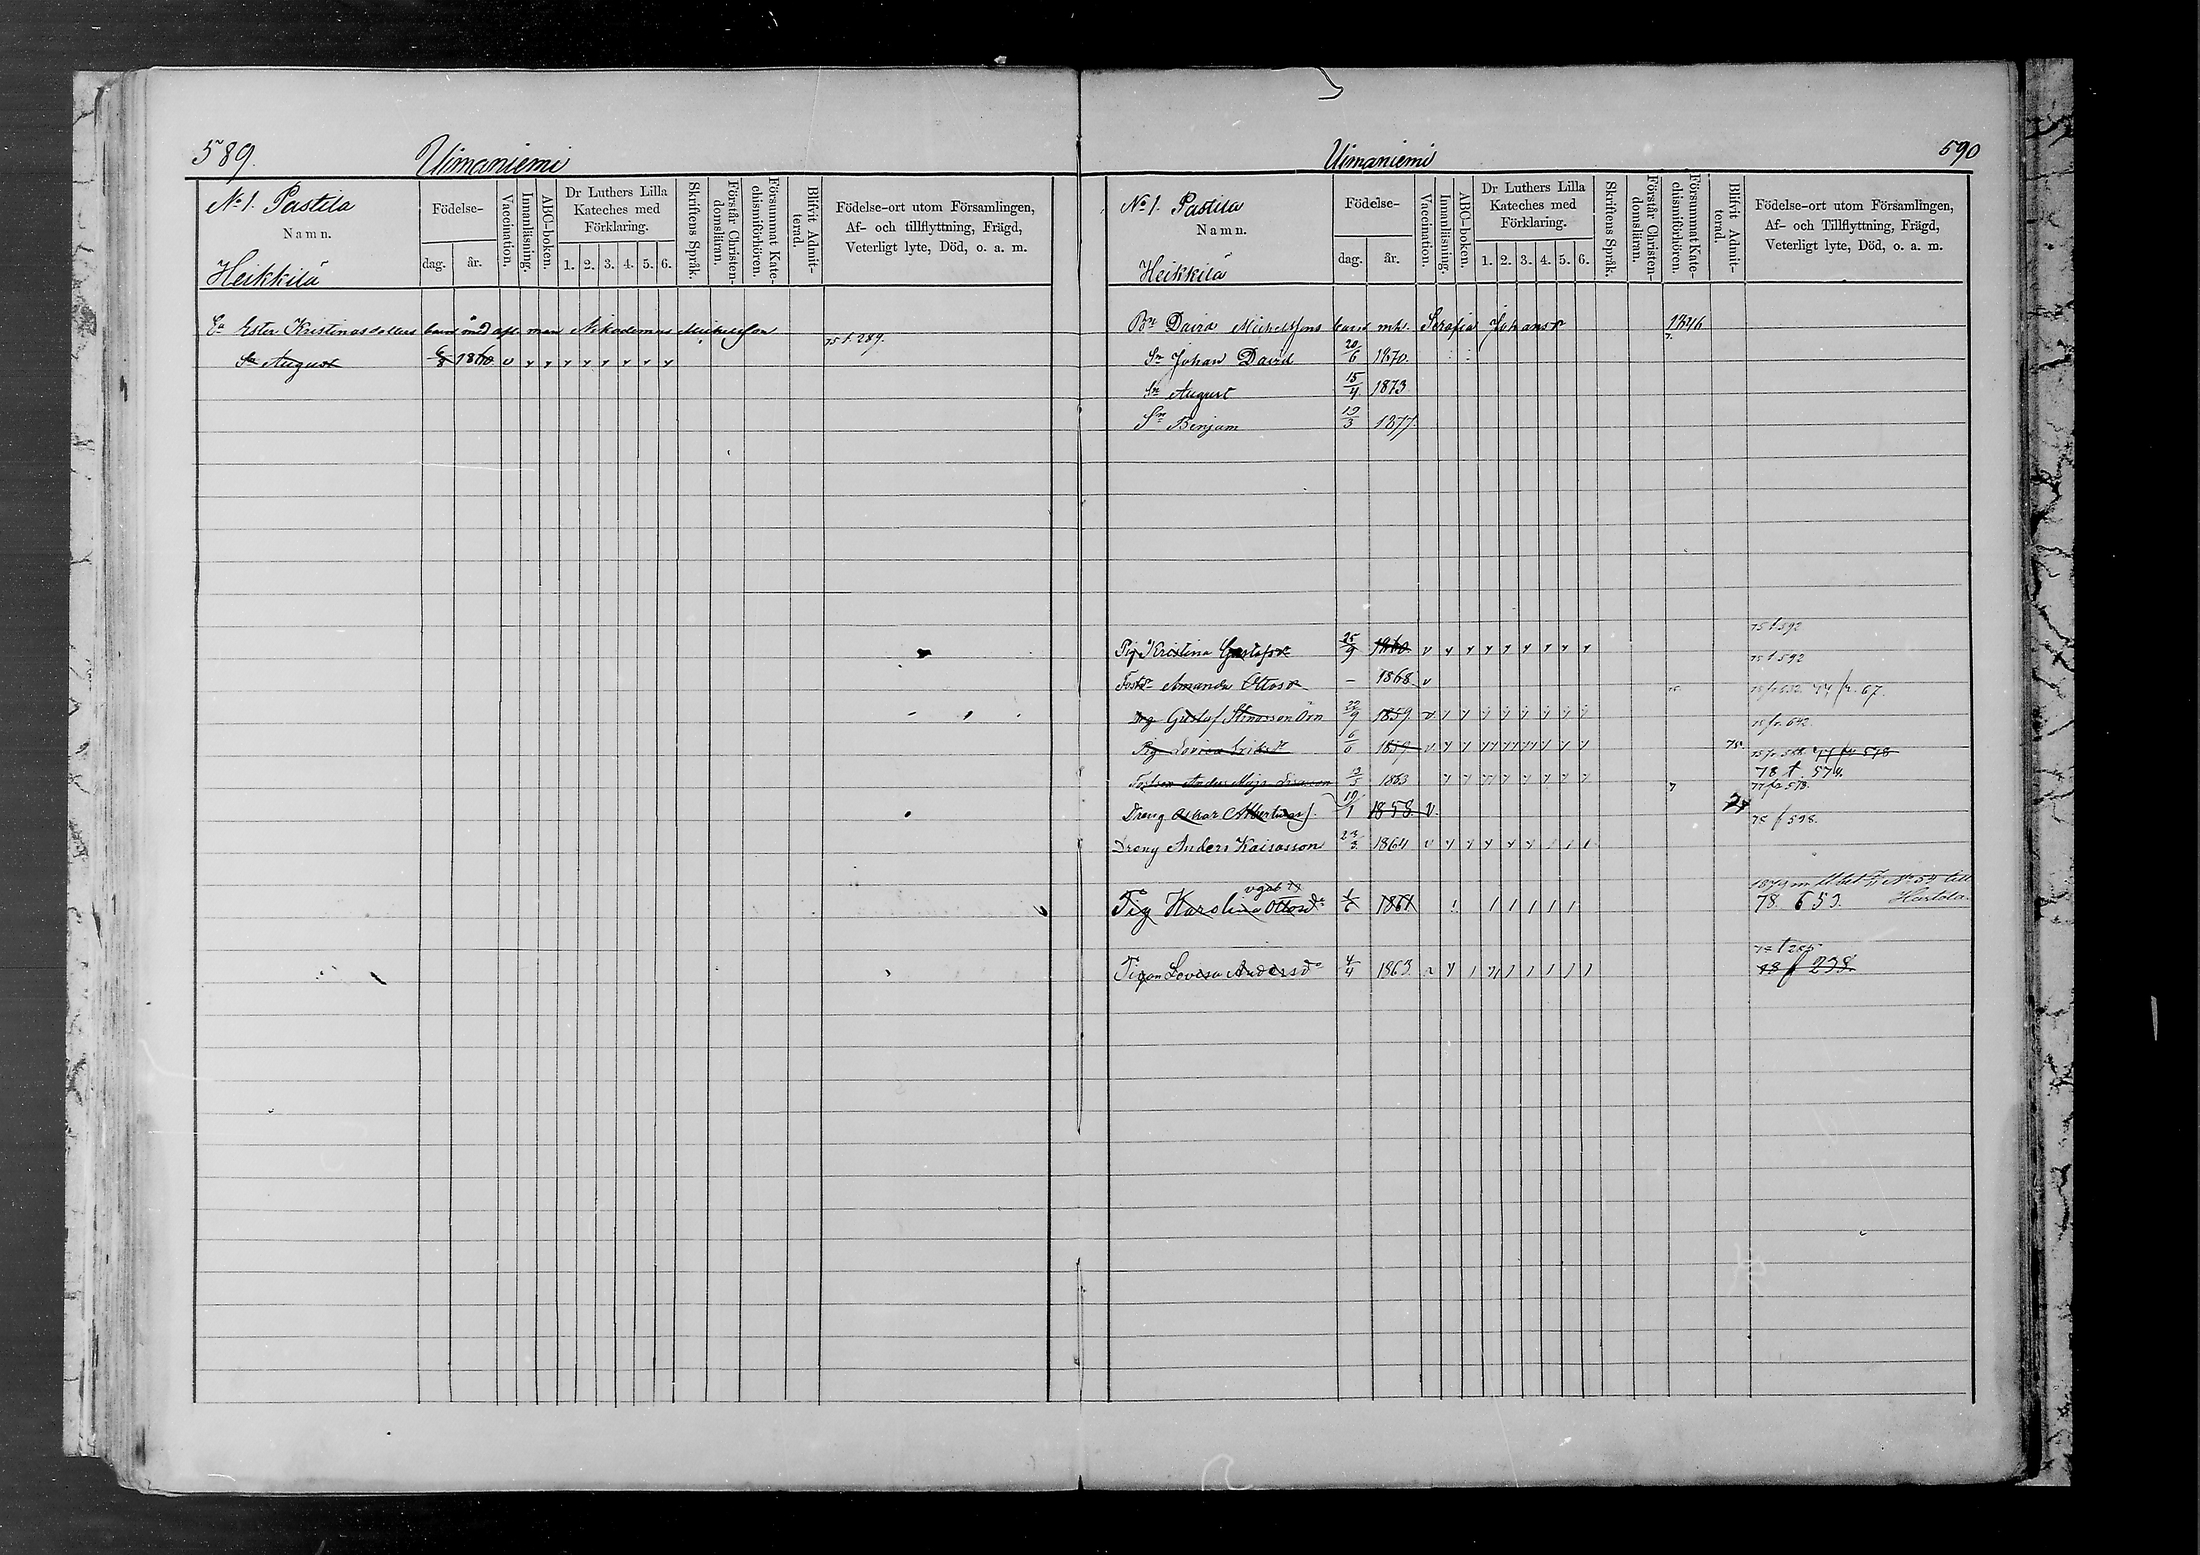 589.
Uimaniemi
No 1. Pastila
Namn.
Heikkilä
Födelse-
dag.
år.
Vaccination.
Innanläsning.
ABC-boken.
Dr Luthers Lilla
Kateches med
Förklaring.
1. 2. 3. 4. 5. 6.
Skriftens Språk.
Förstår Christen-
domsläran.
Försummat Kate-
chismiförhören.
Blifvit Admit-
terad.
Födelse-ort utom Församlingen,
Af- och tillflyttning, Frägd,
Veterligt lyte, Död, o. a. m.
Ester Kristinasdotters barn med afl. man Nikodemus Michelsson
75 t. 289.
Sn August 1860 v y y y y y y y y
Uimaniemi
590
No 1. Pastila
Namn.
Heikkilä
Födelse-
dag.
år.
Vaccination.
Innanläsning.
ABC-boken.
Dr Luthers Lilla
Kateches med
Förklaring.
1. 2. 3. 4. 5. 6.
Skriftens Språk.
Förstår Christen-
domsläran.
Försummat Kate-
chismiförhören.
Blifvit Admit-
terad.
Födelse-ort utom Församlingen,
Af- och Tillflyttning, Frägd,
Veterligt lyte, Död, o. a. m.
Bn David Michelssons barn Serafia Johansdr 1846
Sn Johan David 20/6 1870.
Sn August 15/4 1873
Sn Benjam 19/3 1877.
75 t 592
Pig Kristina Gustafsdr 25/9 1860 v y y y y y y y y
75 t 592
Amanda Ottosdr – 1868 v
77 fr. 67.
Drg Gustaf 22/9 1859 v y y y y y y y y
75 fr. 642
Pig Lovisa Eriksdr 6/6 1859 v y y yy yy yy y y y
75.
77 fr 578
78 t. 574.
Anders 3/5 1863 y y y y y y y y
77 fr 578.
Dreng Oskar 19/1 1858 v
75 f 598.
Dreng Anders Kaisasson 23/3 1864 v y y y y y
till
Pig Karolina Ottosdr 1/6 1861
78. 653.
Hartola.
Pigan Lovisa Andersdr 4/4 1863
78 f 238.